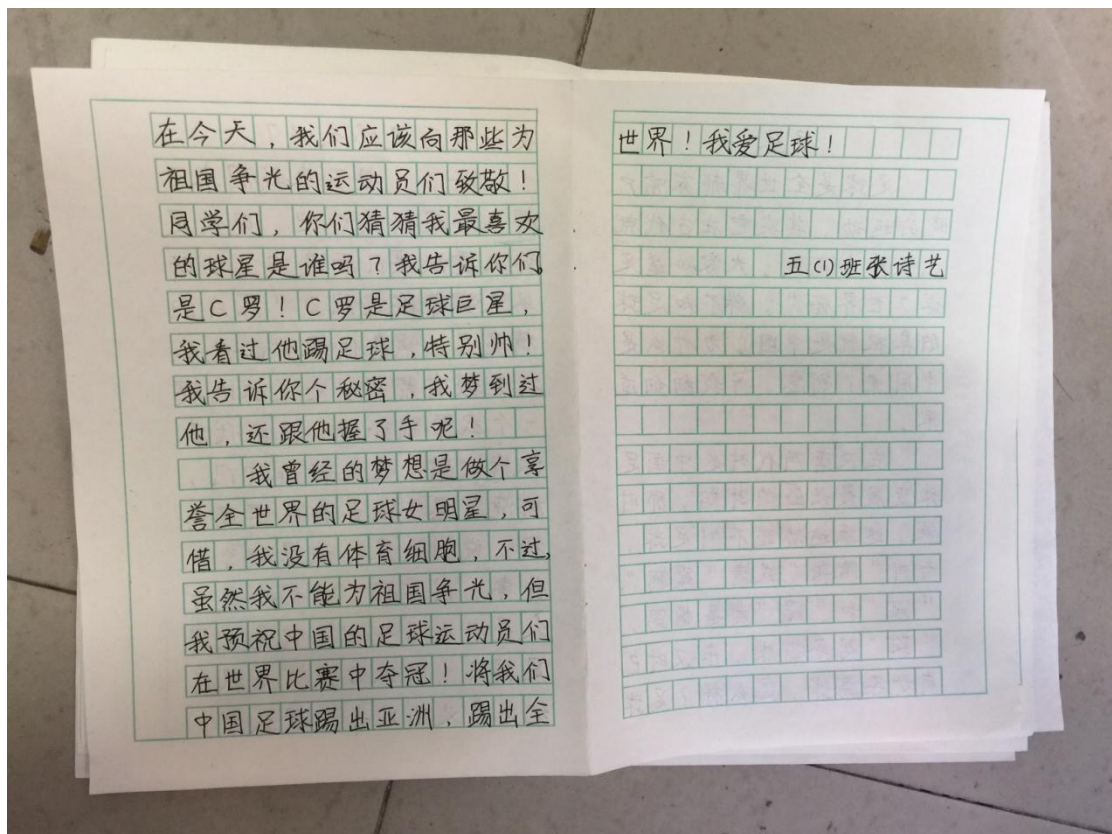 在今天,我们应该向那些为
祖国争光的运动员们致敬!
同学们,你们猜猜我最喜欢
的球星是谁吗?我告诉你们。
是C罗!C罗是足球巨星,
我看过他踢足球,特别帅!
我告诉你个秘密,我梦到过
他,还跟他握了手呢!
我曾经的梦想是做个享
誉全世界的足球女明星,可
惜,我没有体育细胞,不过,
虽然我不能为祖国争光,但
我预祝中国的足球运动员们
在世界比赛中夺冠!将我们
中国足球踢出亚洲,踢出全
世界!我爱足球!
五(1)班张诗艺